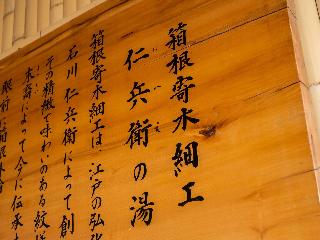 箱根寄木細工
仁兵衛の湯
箱根寄木細工は、江戸の弘化
石川仁兵衛によって創
その精緻で味わいのある紋様
木霧によって今に伝承さ